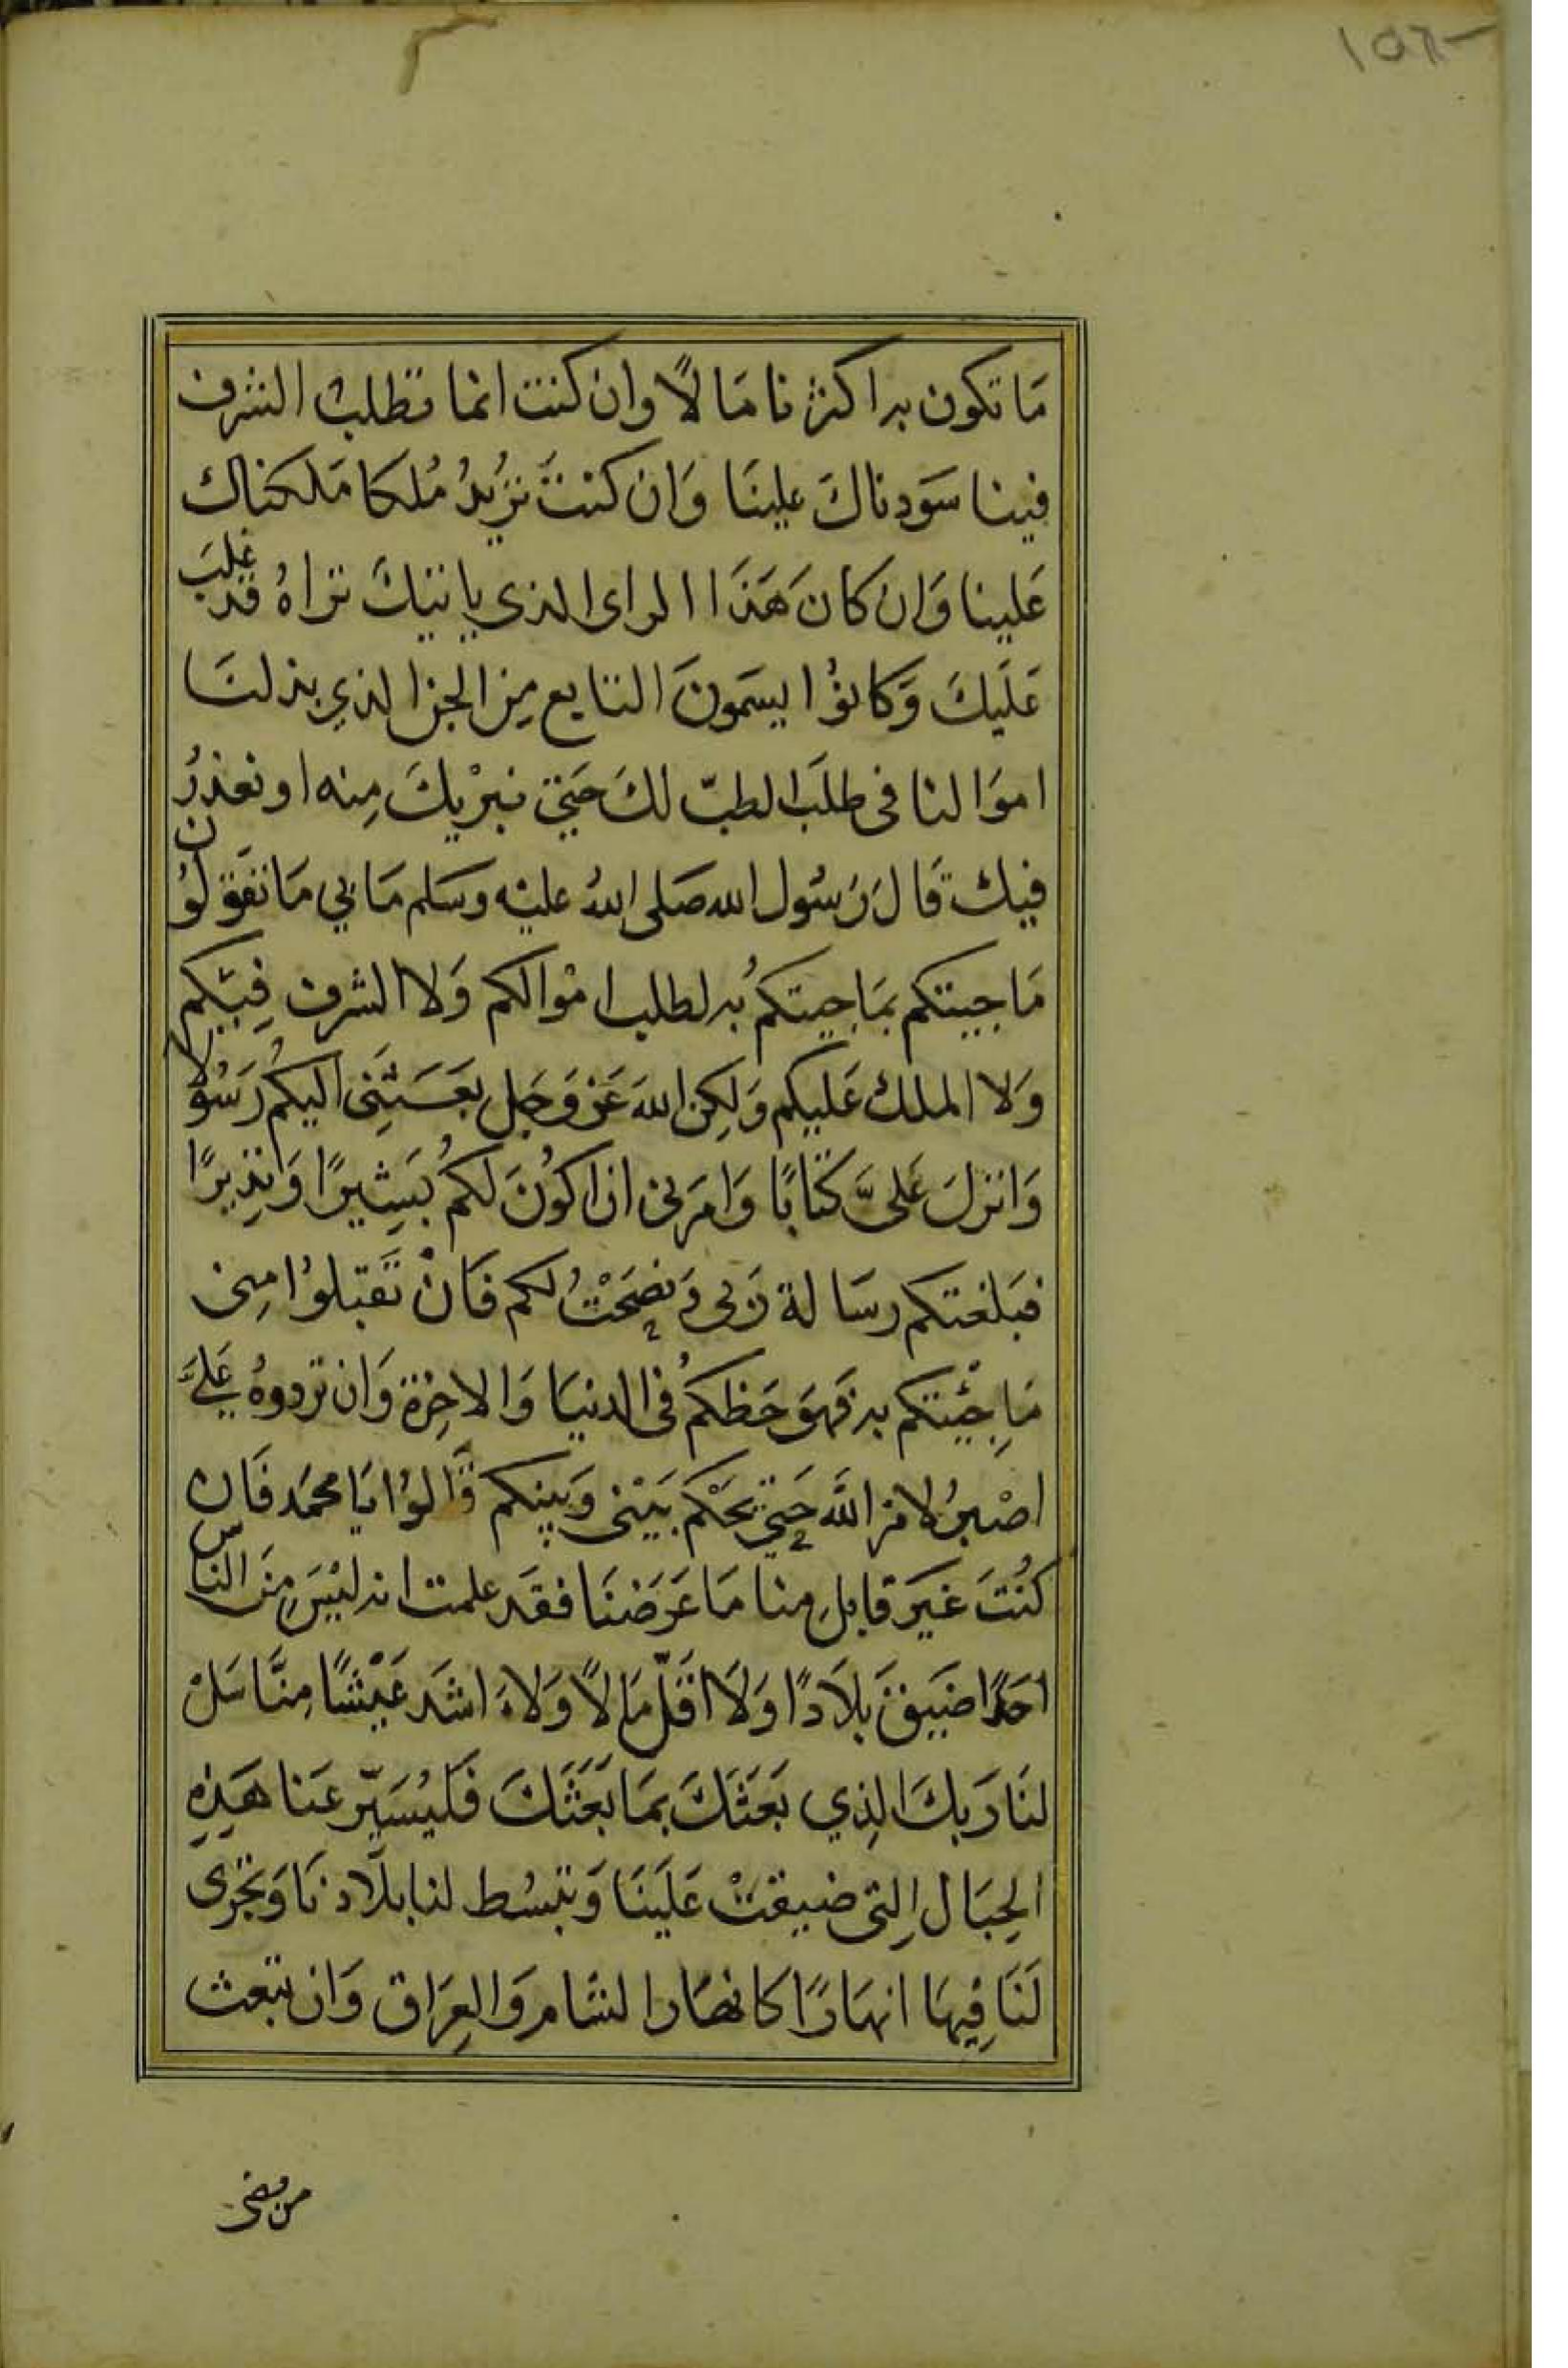 ١٥٦
مَا تكون به اكثرنا مَالًا وان كنت انما تطلب الشرف
فينا سَودناكَ علينَا وَان كنتَ تُرِيدُ مُلكا مَلكناك
عَلينا وَان كانَ هَذَا الراى الذى ياتيكَ تراهُ قد غلبَ
عَلَيكَ وَكانوُا يسَمونَ التابع مِن الجن الذي بذلنَا
اموَالنا فى طلبَ الطبّ لكَ حَتي نبرْيكَ مِنه او نعذرُ
فيك قَالَ رَسُول الله صَلى اللهُ عليْه وسَلم مَا بي مَا تقوَلوُن
مَا جيتكم بمَا جيتكمُ به لطلب امْوالكم وَلا الشرف فِيكم
وَلا الملك عَليكم وَلكِن اللهَ عَز وَجَل بعَثَنِى اليكمُ رَسُولا
وَانزلَ عَلىَّ كتَابًا وَامرَنى ان اكوُنَ لكمُ بَشِيرًا وَنذِيرًا
فبَلغتكم رسَالة رَبى وَنصَحْتُ لكم فَانْ تَقبَلوُا مِنى
مَا جِئْتكم به فهوَ حَظكمُ فى الدنيَا وَالاخِرَة وَان تردوهُ عَليَّ
اصْبرُ لامر اللَّه حَتي يحَكم بَيْنى وَبينكم قَالوُا يَا محمَد فَان
كنُتَ غَيرَ قابلِ منا مَا عَرَضنَا فقَد علمت انه ليْسَ مِنَ الناس
احَدًا اضيَقَ بلَادًا وَلَا اقَلّ مَالًا وَلاَ اشَد عَيْشًا مِنَّا سَل
لنَا رَبكَ الذِي بَعَثَكَ بمَا بَعَثَكَ فَليُسَيّر عَنا هَذِهِ
الجِبَال التِى ضيقتْ عَلَينَا وَيبسُط لنا بلَادنَا وَيجرى
لَنَا فِيهَا انهَارًا كانهَار الشَام وَالعِرَاق وَان يبعث
من مضى